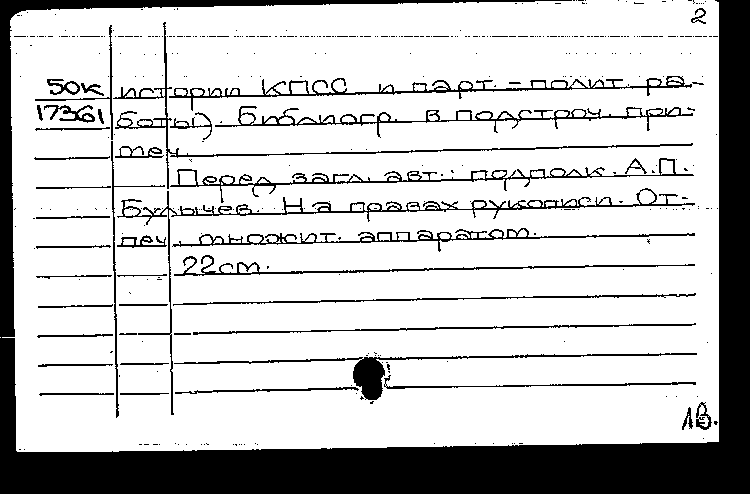 2
50к истории КПСС и парт.-полит. ра-
17361 боты). Библиогр. в подстроч. при-
меч.
Перед загл. авт.: подполк. А.П.
Булычев. На правах рукописи. От-
печ. множит. аппаратом.
22см.
1В.